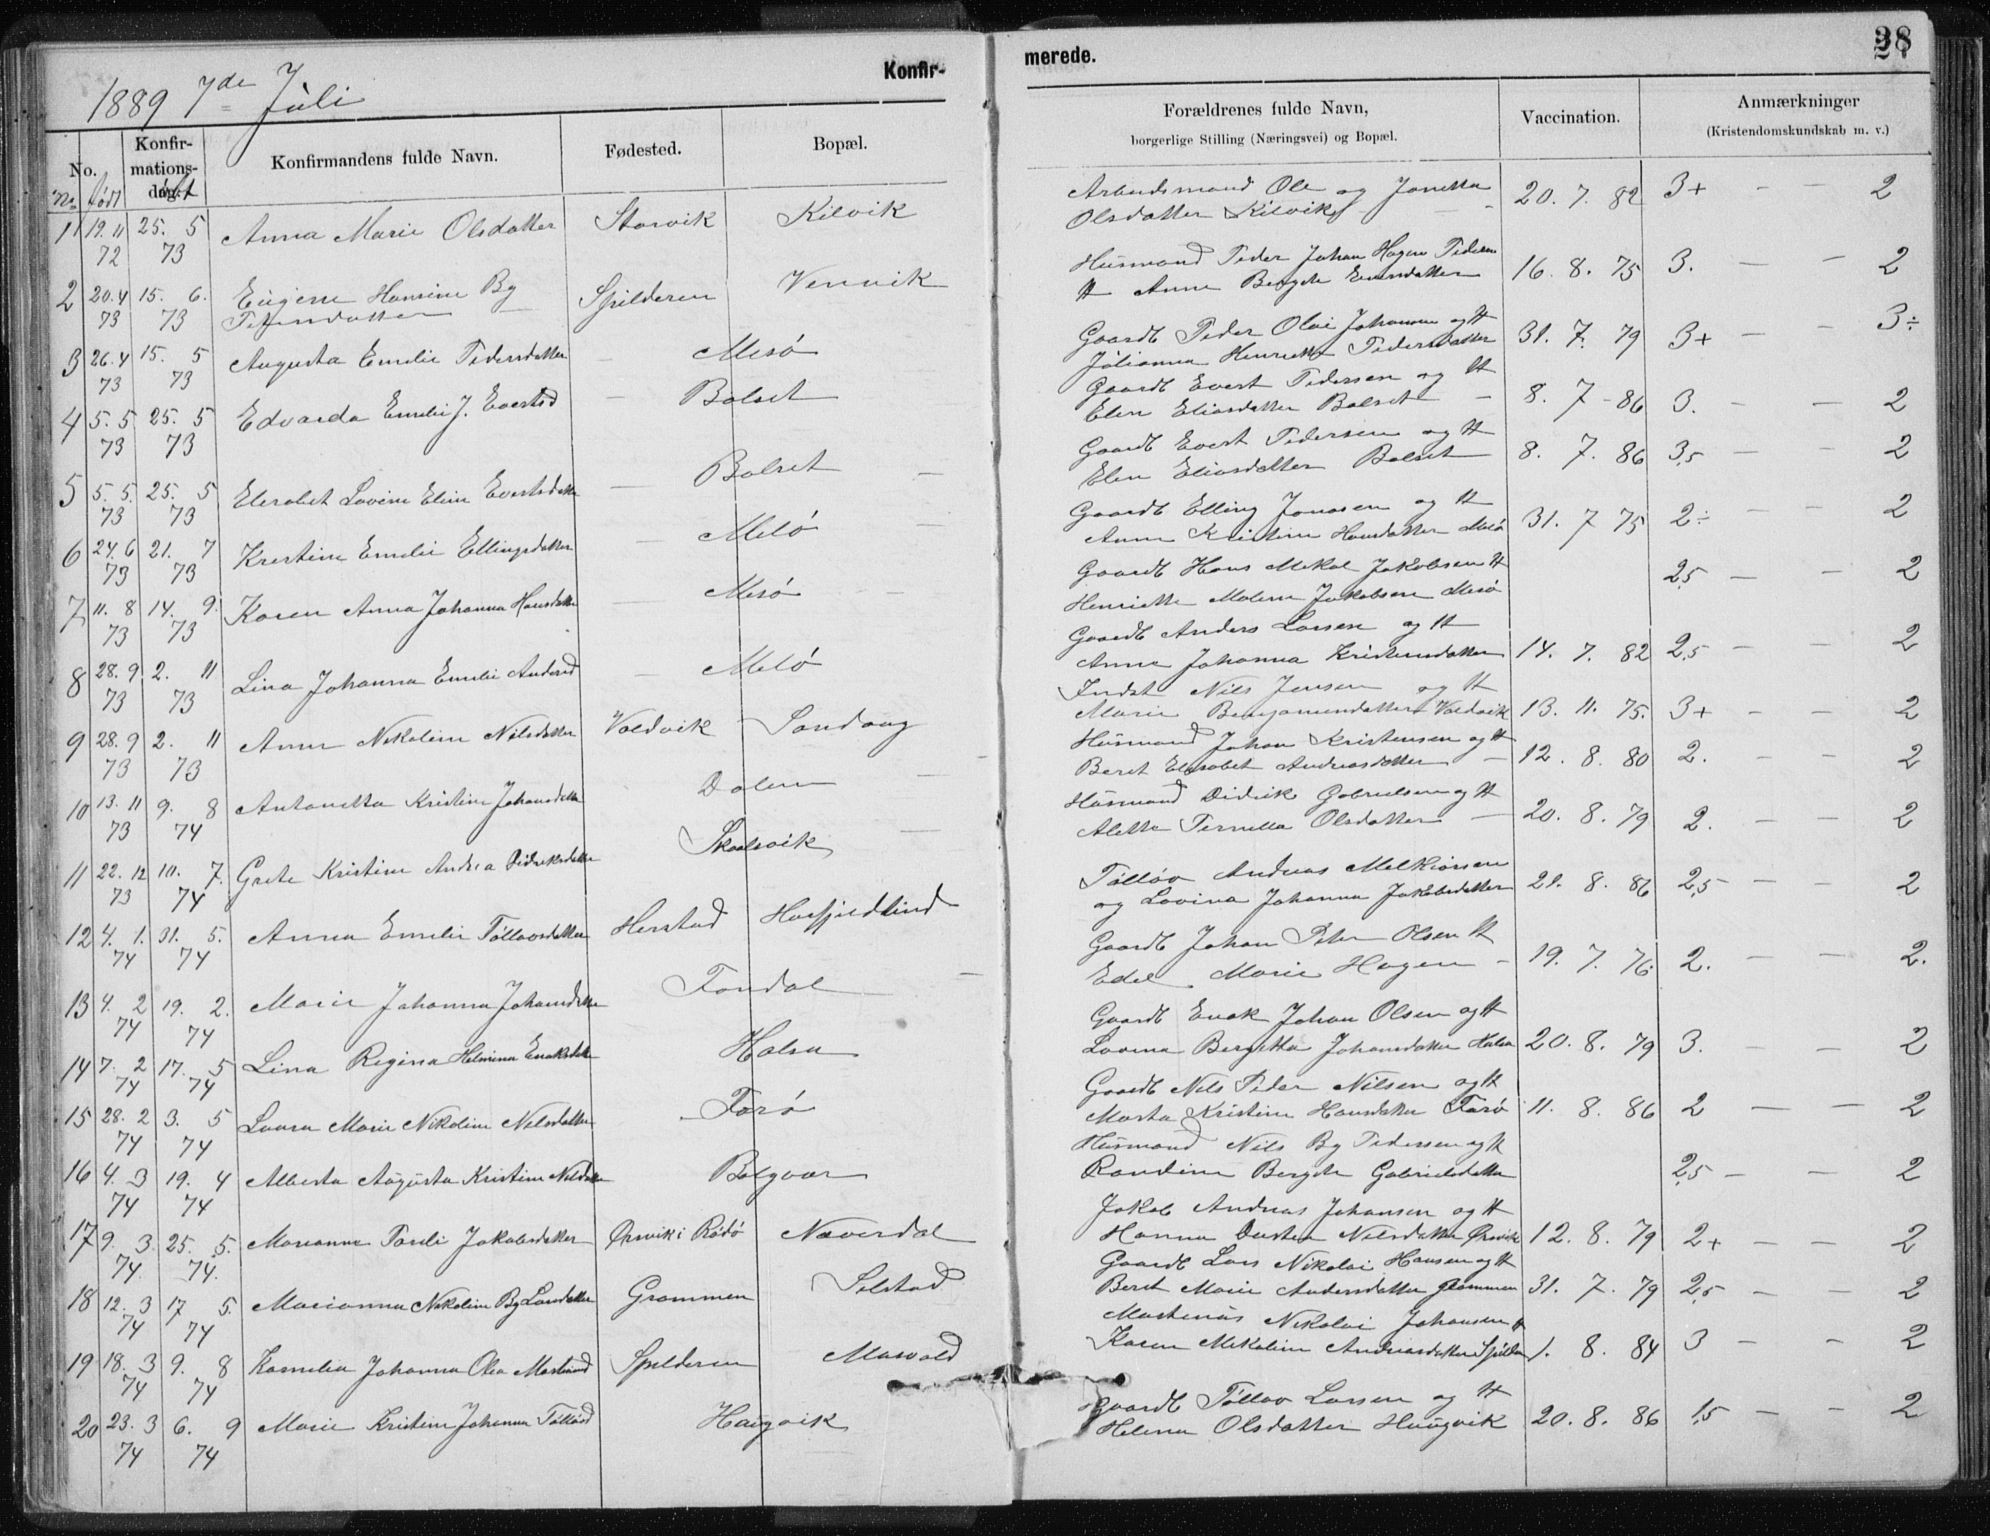 Konfir-
merede.
38
1889 7de Juli
No. Konfir-mations-dag. Konfirmandens fulde Navn. Fødested. Bopæl.
Forældrenes fulde Navn, borgerlige Stilling (Næringsvei) og Bopæl. Vaccination. Anmærkninger (Kristendomskundskab m. v.)
No født døbt
1 19. 11 72 25. 5 73 Anna Marie Olsdatter Storvik Kilvik
Arbeidsmand Ole og Janetta
Olsdatter Kilvik 20. 7. 82 3+ — — 2
2 20. 4 73 15. 6. 73 Eugene Hansine By
Petersdatter Spilderen Venvik
Husmand Peder Johan Hagen Pedersen
H Anne Bergete Evensdatter 16. 8. 75 3. — — 2
3 26. 4 73 15. 5 73 Augusta Emelie Pedersdatter — Mesö
Gaardb Peder Olai Johansen og H
Julianna Henrette Pedersdatter 31. 7. 79 3+ — — 3÷
4 5. 5 73 25. 5 73 Edvarda Emelie J. Evertsd — Bolset
Gaardb Evert Pedersen og H
Elen Eliasdatter Bolset 8. 7 - 86 3. — — 2
5 5. 5. 73 25. 5 73 Elesabet Lovine Eline Evertsdatter — Bolset —
Gaardb Evert Pedersen og H
Elen Eliasdatter Bolset 8. 7. 86 3,5 — — 2
6 24. 6 73 21. 7 73 Krestine Emelie Ellingsdatter — Melö —
Gaardb Elling Jonasen og H
Anne Kristine Hansdatter Melö 31. 7 75 2÷ — — 2
7 11. 8 73 14. 9. 73 Karen Anna Johanna Hansdatter — Mesö —
Gaardb Hans Mekal Jakobsen H
Henriette Malene Jakobsen Mesö 2,5 — — 2
8 28. 9 73 2. 11 73 Lina Johanna Emelie Andersd — Melö
Gaardb Anders Larsen og H
Anne Johanna Kristensdatter 14. 7. 82 2,5 — — 2
9 28. 9 73 2. 11 73 Anne Nekoline Nilsdatter Valdvik Sandaag
Indst Nils Jensen og H
Marie Benjamensdatter Valdvik 13. 11. 75. 3+ — — 2
10 13. 11 73 9. 8 74 Antonetta Kristine Johansdatter Dalen —
Husmand Johan Kristensen og H
Beret Elesabet Andreasdatter 12. 8. 80 2. — — 2
11 22. 12 73 10. 7. 74 Grete Kristine Andrea Didriksdatter Skalsvik —
Husmand Didrik Gabrielsen og H
Alette Pernella Olsdatter — 20. 8. 79 2. — — 2
12 4. 1. 74 31. 5. 74 Anna Emelie Tollovsdatter Herstad Haafjeldlind
Tolløv Andreas Melkiorsen
og Lovina Johanna Jakobsdatter 21. 8. 86 2,5 — — 2
13 4. 2 74 19. 2. 74 Marie Johanna Johansdatter Fondal —
Gaardb Johan Peter Olsen H
Edel Marie Hagen 19. 7. 76. 2. — — 2.
14 7. 2 74 17. 5 74 Lina Regina Helmina Enoksdatter Halsa
Gaardb Enok Johan Olsen og H
Lovina Bergitta Johansdatter Halsa 20. 8. 79 3. — — 2
15 28. 2 74 3. 5 74 Laura Marie Nikoline Nelsdatter Forö
Gaardb Nels Peder Nilsen og H
Marta Kristine Hansdatter Forö 11. 8. 86 2 — — 2
16 4. 3 74 19. 4 74 Alberta Augusta Kristine Nelsdatter Bolgvær
Husmand Nils By Pedersen og H
Randine Bergete Gabrielsdatter 2,5 — — 2
17 9. 3. 74. 25. 5. 74. Marianne Pauli Jakobsdatter Ørsvik i Rödö Næverdal
Jakob Andreas Johansen og H
Hanna Nilsdatter Ørsvik 12. 8. 79 2+ — — 2
18 12. 3 74 17 5. 74 Marianna Nekoline By Larsdatter Grammen Selstad
Gaardb Lars Nikolai Hansen og H
Beret Marie Andersdatter Grammen 31. 7. 79 2,5 — — 2
19 18. 3 74 9. 8 74 Kornelia Johanna Olea Spilderen Masvold
Martenus Nikolai Johansen H
Karen Mekaline Andreasdatter Spilder 1. 8. 84 3 — — 2
20 23. 3 74 6. 9 74 Marie Kristine Johanna Tollövd Haugvik
Gaardb Tollov Larsen og H
Helena Olsdatter Haugvik 20. 8. 86 1,5 — — 2